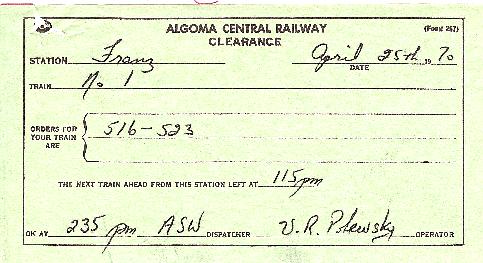 ALGOMA CENTRAL RAILWAY (Form 267)
CLEARANCE
STATION Franz April 25th 1970
DATE
TRAIN No 1
ORDERS FOR YOUR TRAIN ARE 516-523
THE NEXT TRAIN AHEAD FROM THIS STATION LEFT AT 115pm
OK AT 235 pm ASW DISPATCHER V. R. OPERATOR